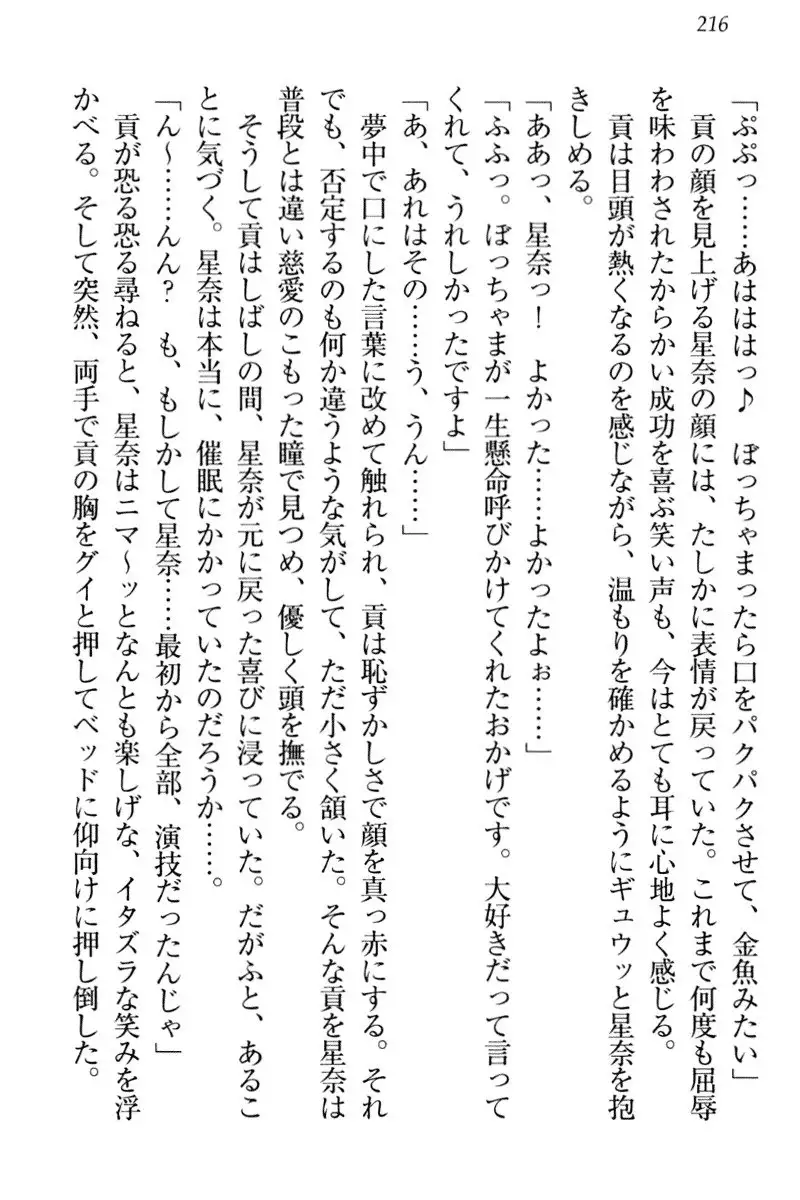 216
「ぷぷっ……あはははっ♪　ぼっちゃまったら口をパクパクさせて、金魚みたい」
　貢の顔を見上げる星奈の顔には、たしかに表情が戻っていた。これまで何度も屈辱
を味わわされたからかい成功を喜ぶ笑い声も、今はとても耳に心地よく感じる。
　貢は目頭が熱くなるのを感じながら、温もりを確かめるようにギュウッと星奈を抱
きしめる。
「ああっ、星奈っ！　よかった……よかったよぉ……」
「ふふっ。ぼっちゃまが一生懸命呼びかけてくれたおかげです。大好きだって言って
くれて、うれしかったですよ」
「あ、あれはその……う、うん……」
　夢中で口にした言葉に改めて触れられ、貢は恥ずかしさで顔を真っ赤にする。それ
でも、否定するのも何か違うような気がして、ただ小さく頷いた。そんな貢を星奈は
普段とは違い慈愛のこもった瞳で見つめ、優しく頭を撫でる。
　そうして貢はしばしの間、星奈が元に戻った喜びに浸っていた。だがふと、あるこ
とに気づく。星奈は本当に、催眠にかかっていたのだろうか……。
「ん〜……んん？　も、もしかして星奈……最初から全部、演技だったんじゃ」
　貢が恐る恐る尋ねると、星奈はニマ〜ッとなんとも楽しげな、イタズラな笑みを浮
かべる。そして突然、両手で貢の胸をグイと押してベッドに仰向けに押し倒した。